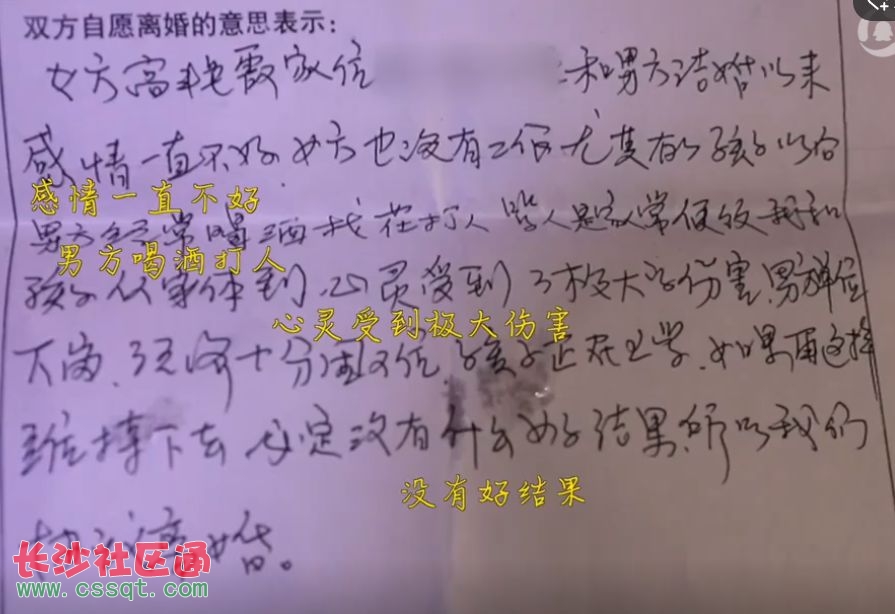 双方自愿离婚的意思表示：
女方高艳霞家住 和男方结婚以来
感情一直不好，女方也没有工作尤其有了孩子以后
感情一直不好
男方经常喝酒找茬打人 骂人是家常便饭 我和
男方喝酒打人
孩子从身体到心灵受到了极大的伤害，男方单位
心灵受到极大伤害
下岗，经济十分困难，孩子正在上学，如果再这样
维持下去 必定没有什么好结果，所以我们
没有好结果
离婚。
长沙社区通
www.cssqt.com